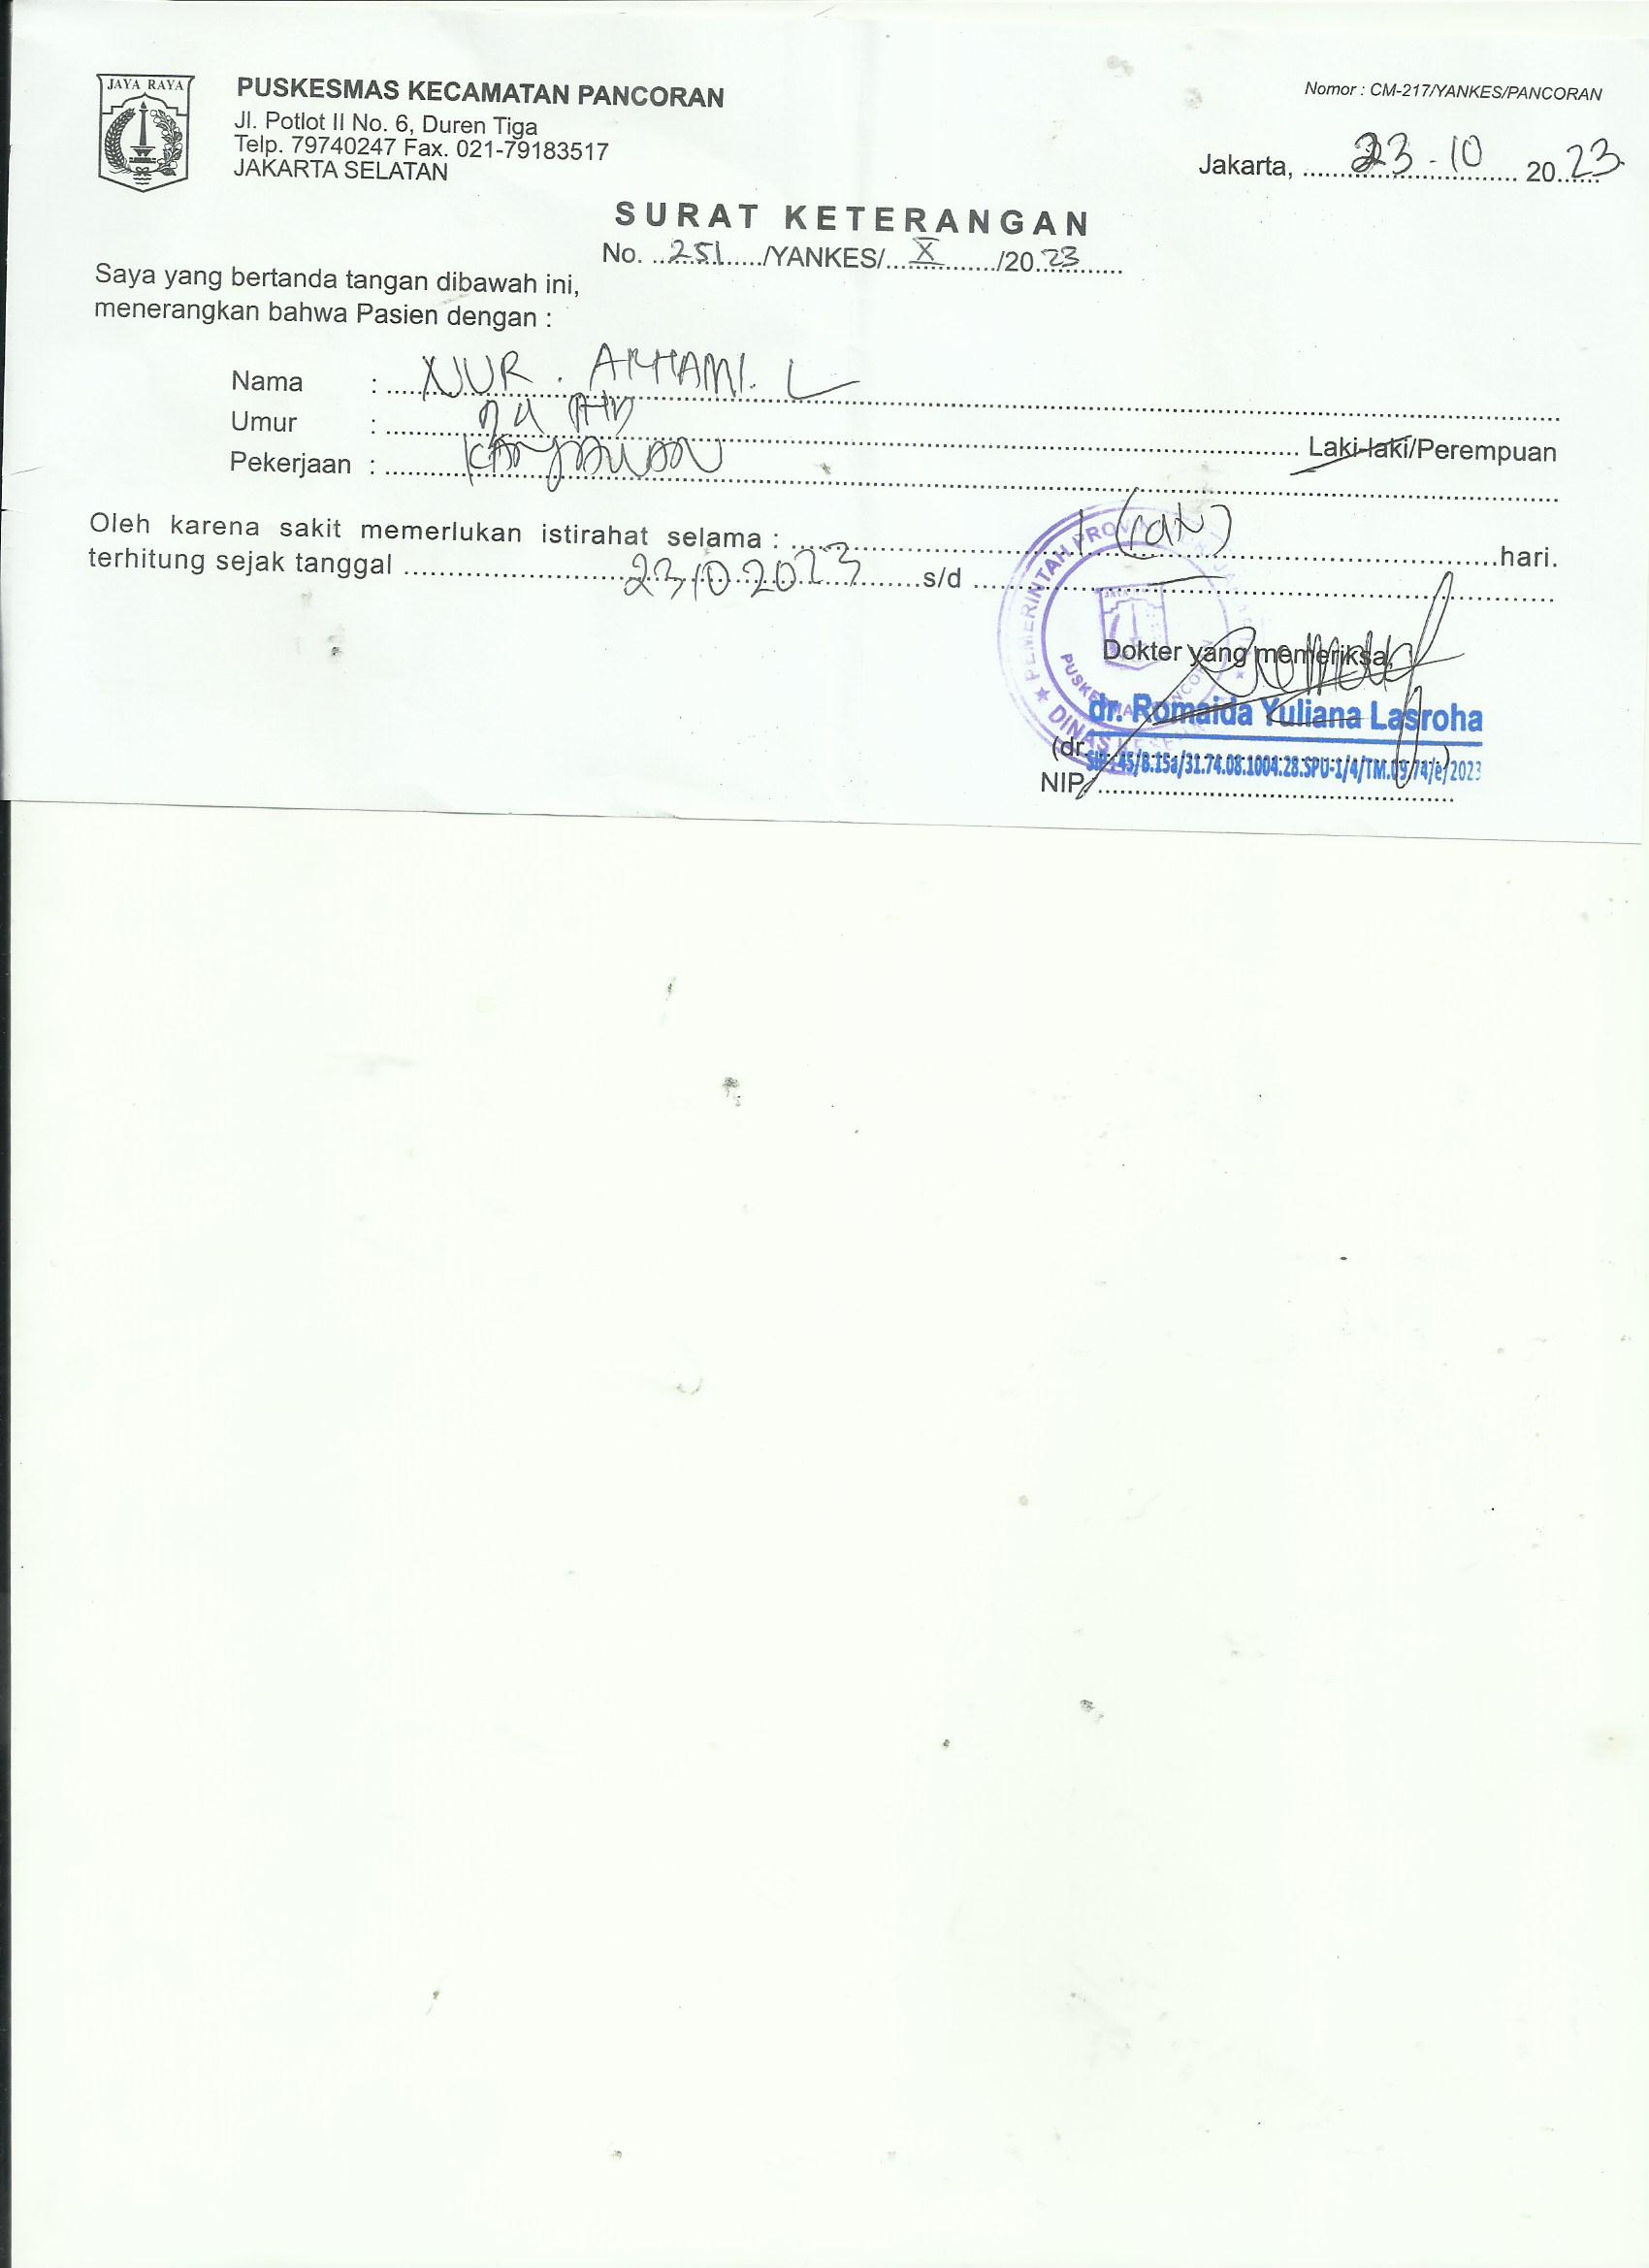 JAYA RAYA
PUSKESMAS KECAMATAN PANCORAN
Jl. Potlot II No. 6, Duren Tiga
Telp. 79740247 Fax. 021-79183517
JAKARTA SELATAN
Nomor : CM-217/YANKES/PANCORAN
Jakarta, 23-10 2023
SURAT KETERANGAN
No. 251/YANKES/X/2023
Saya yang bertanda tangan dibawah ini,
menerangkan bahwa Pasien dengan :
Nama : NUR. L
Umur :
Laki-laki/Perempuan
Pekerjaan : Karyawan
Oleh karena sakit memerlukan istirahat selama : 1 hari.
terhitung sejak tanggal 23/10 2023 s/d -
Dokter yang memeriksa,
PEMERINTAH PROVINSI
PUSKESMAS PANCORAN
DINAS KESEHATAN
dr. Romaida Yuliana Lasroha
(dr. )
SIP: 45/B.15a/31.74.08.1004.28.SPU-1/4/TM.09.74/e/2023
NIP.